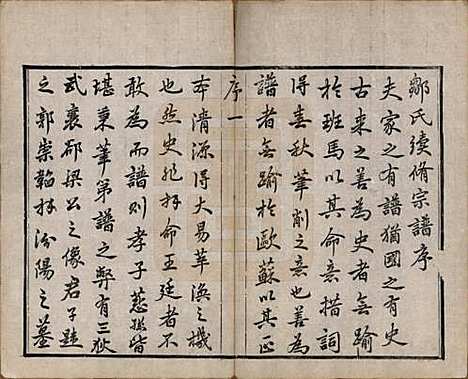 鄒氏續脩宗譜序
夫家之有譜猶國之有史
古來之善為史者無踰
於班馬以其命意措詞
得春秋筆削之意也善為
譜者無踰於歐蘇以其正
序一
本清源得大易萃渙之機
也然史非奉命王廷者不
敢為而譜則孝子慈孫皆
堪秉筆第譜之弊有三狄
武襄卻梁公之像君子韙
之郭崇韜拜汾陽之墓